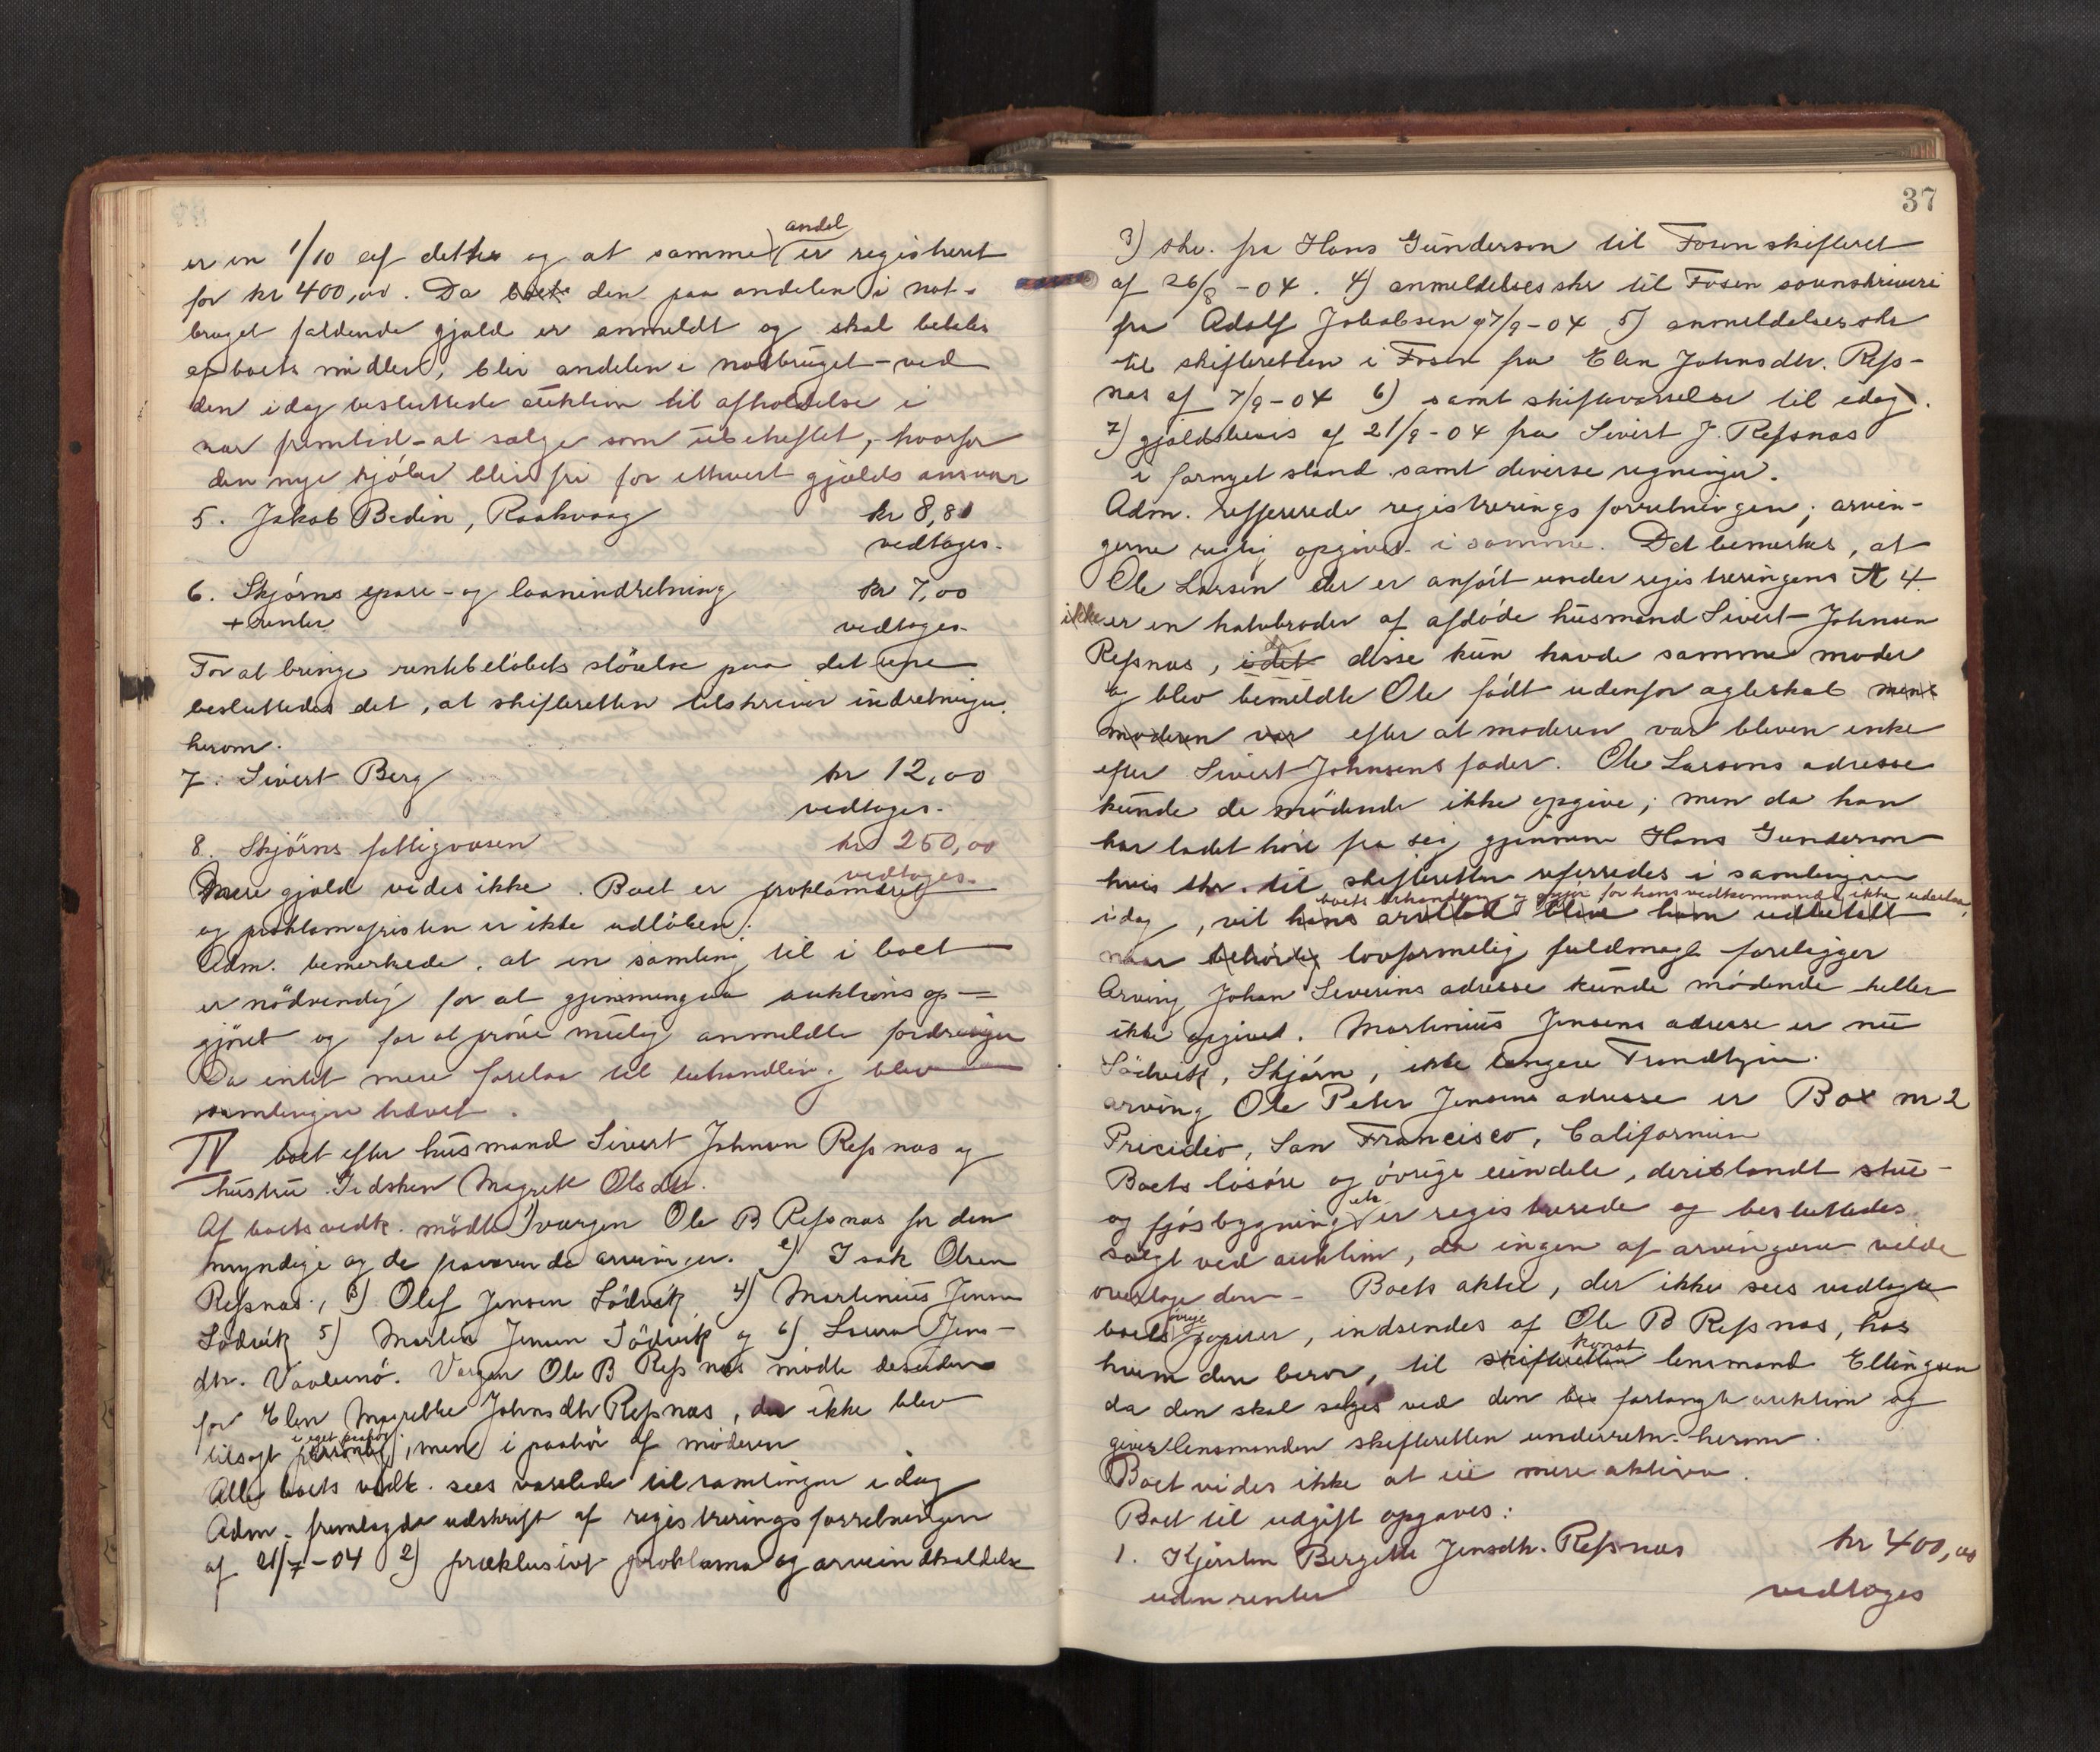 andel
er en 1/10 af dette og at samme er registreret
for kr 400,00. Da den paa andelen i not-
bruget faldende gjæld er anmeldt og skal betales
af boets midler, blir andelen i notbruget – ved
den idag besluttede auktion til afholdelse i
nær fremtid – at sælge som ubeheftet, – hvorfor
den nye kjøber blir fri for ethvert gjælds ansvar
5. Jakob Bedin, Raakvaag kr 8,80
vedtages.
6. Skjörns spare- og laanindretning kr 7,00
+ renter vedtages.
For at bringe rentebelöbets störelse paa det rene
besluttedes det, at skifteretten tilskriver indretningen
herom.
7. Sivert Berg kr 12,00
vedtages.
8. Skjörns fattigvæsen kr 250,00
vedtages.
Mere gjæld vides ikke. Boet er proklameret
og proklamafristen er ikke udlöben.
Adm. bemerkede, at en samling til i boet
er nödvendig for at gjennemgaa auktions op-
gjöret og for at pröve mulig anmeldte fordringer
Da intet mere forelaa til behandling blev
samlingen hævet.
IV boet efter husmand Sivert Johnsen Refsnæs og
hustru Gidsken Magrete Olsdtr.
Af boets vedk. mödte 1) værgen Ole B Refsnæs for den
myndige og de fraværende arvinger. 2) Isak Olsen
Refsnæs., 3) Olef Jensen Södvik, 4) Martinius Jensen
Södvik 5) Martin Jensen Södvik og 6) Laura Jens-
dtr. Vaolenö. Værgen Ole B Refsnæs mödte desuden
for Elen Magrethe Johnsdtr Refsnæs, der ikke blev
i eget paahör
tilsagt personlig, men i paahör af moderen
Alle boets vedk. sees varslede til samlingen idag
Adm. fremlagde udskrift af registreringsforretningen
af 21/7-04 2) præklusivt proklama og arveindkaldelse
37
3) skr. fra Hans Gunderson til Fosen skifteret
af 26/8-04. 4) anmeldelsesskr til Fosen sorenskriveri
fra Adolf Jakobsen 7/9-04 5) anmeldelsesskr
til skifteretten i Fosen fra Elen Johnsdtr. Refs-
næs af 7/9-04 6) samt skiftevarselse til idag.
7) gjældsbevis af 21/9-04 fra Sivert J. Refsnæs
i fornyet stand samt diverse regninger.
Adm. refererede registrerings forretningen; arvin-
gerne rigtig opgivet i samme. Det bemerkes, at
Ole Larsen der er anfört under registreringens A 4
ikke er en halvbroder af afdöde husmand Sivert Johnsen
da
Refsnæs, idet disse kun havde samme moder
og blev bemeldte Ole födt udenfor ægteskab mens
moderen var efter at moderen var bleven enke
efter Sivert Johnsens fader. Ole Larsens adresse
kunde de mödende ikke opgive; men da han
har ladet höre fra sig gjennem Hans Gunderson
hvis skr. til skifteretten refereredes i samlingen
boets behandling og opgjör for hans vedkommende ikke udestaa,
idag, vil hans arvelod blive ham udbetalt
naar behörig lovformelig fuldmagt foreligger
Arving Johan Severins adresse kunde mödende heller
ikke opgivet. Martinius Jensens adresse er nu
Södvik, Skjörn, ikke længere Trondhjem.
arving Ole Peter Jensens adresse er Box nr 2
Pricidio, San Francisco, Californien
Boets lösöre og övrige eiendele, deriblandt stue-
etc
og fjösbygning er registrerede og besluttedes
solgt ved auktion, da ingen af arvingerne vilde
overtage dem. Boets aktie, der ikke sees vedlagte
övrige
boets papirer, indsendes af Ole B Refsnæs, hos
konst
hvem den beror, til skifteretten lensmand Ellingsen
da den skal sælges ved den be forlangte auktion og
giver lensmanden skifteretten underretn. herom.
Boet vides ikke at eie mere aktiva.
Boet til udgift opgaves:
1. Kjersten Bergette Jensdtr. Refsnæs kr 400,00
uden renter vedtages